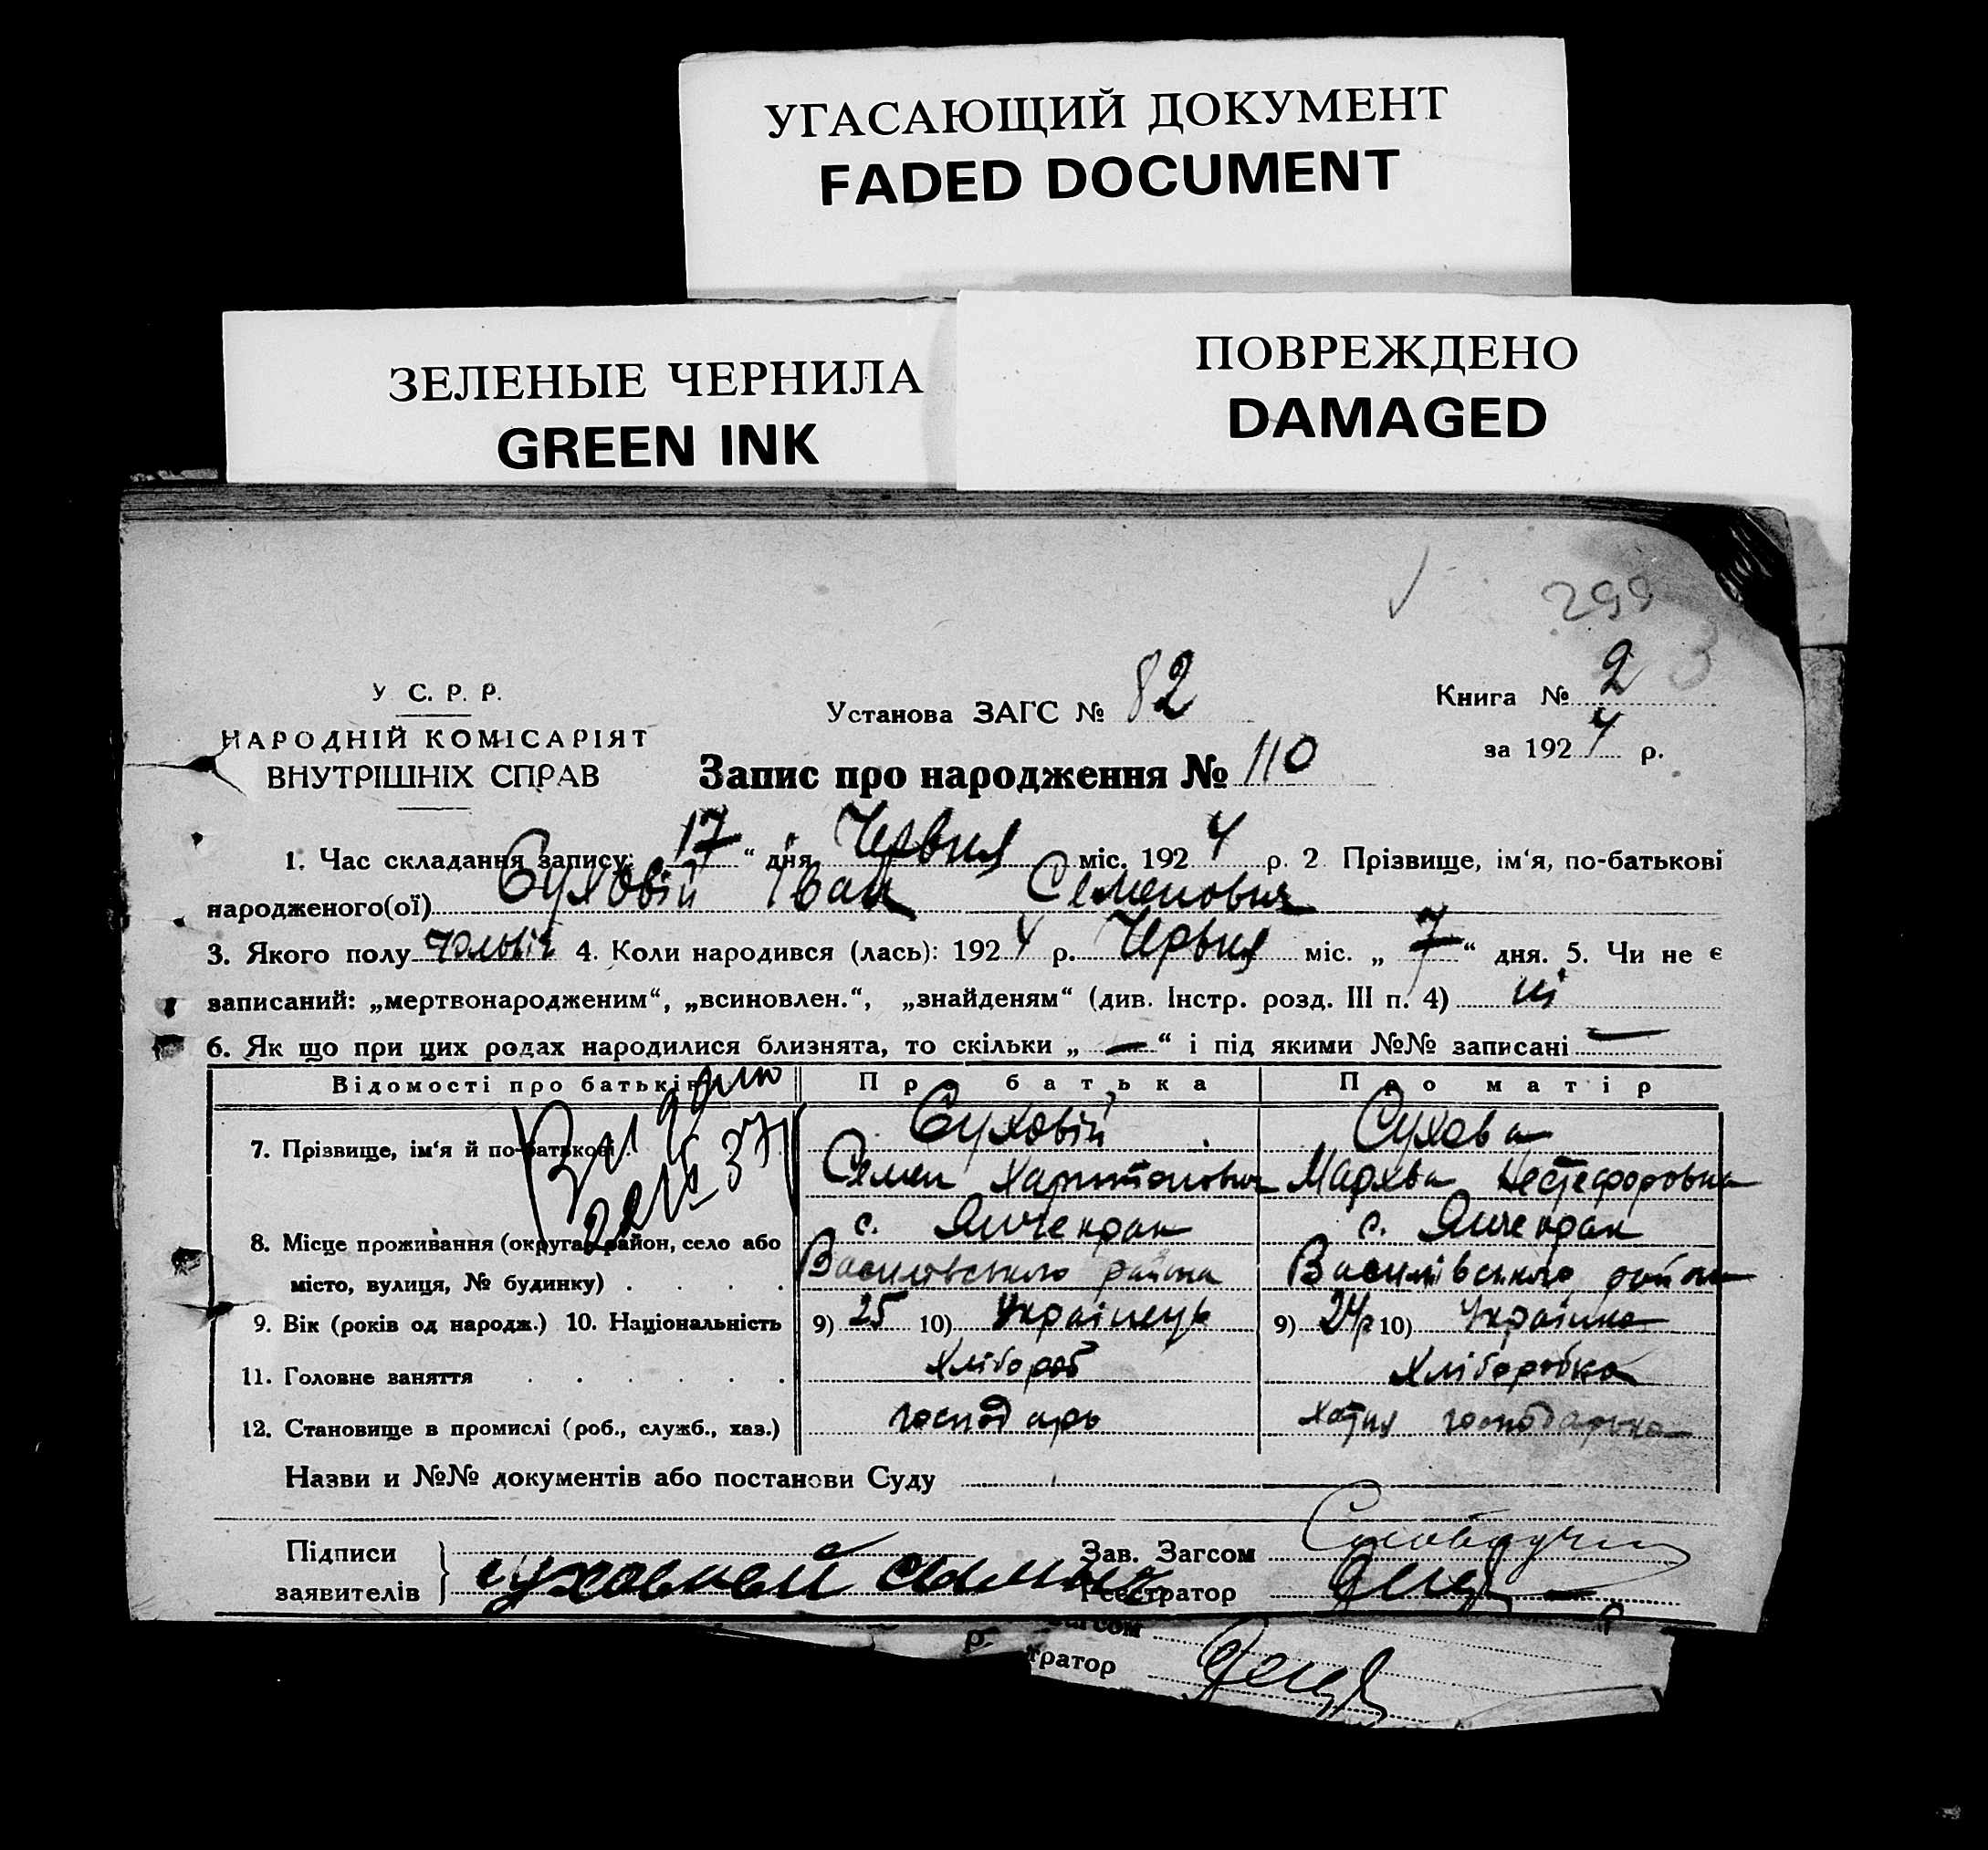 УГАСАЮЩИЙ ДОКУМЕНТ
FADED DOCUMENT
ЗЕЛЕНЫЕ ЧЕРНИЛА
GREEN INK
ПОВРЕЖДЕНО
DAMAGED
299
3
У С. Р. Р.
НАРОДНІЙ КОМІСАРІЯТ
ВНУТРІШНІХ СПРАВ
Установа ЗАГС № 82
Книга № 2
за 1924 р.
Запис про народження № 110
1. Час складання запису: 17 “ дня Червня міс. 1924 р. 2 Прізвище, ім‘я, по-батькові
народженого(ої) Суховій Іван Семенович
3. Якого полу чоловіч 4. Коли народився (лась): 1924 р. Червня міс. „ 7 “ дня. 5. Чи не є
записаний: „мертвонародженим“, „всиновлен.“, „знайденям“ (див. Інстр. розд. III п. 4) ні
6. Як що при цих родах народилися близнята, то скільки „ — “ і під якими №№ записані —
Відомості про батьків Про батька Про матір
7. Прізвище, ім‘я й по-батькові Суховій Сухова
Семен Харитонович Мархва Нестефоровна
37
8. Місце проживання (округа, район, село або с. Янчекрак с. Янчекрак
місто, вулиця, № будинку) . . . . Василівського района Василівського района
9. Вік (років од народж.) 10. Національність 9) 25 10) Українець 9) 24р 10) Українка
11. Головне заняття . . . . . . Хлібороб Хліборобка
12. Становище в промислі (роб., служб., хаз.) господарь хатня господарька
Назви и №№ документів або постанови Суду
Підписи
заявителів
Зав. Загсом
Реєстратор
р.
Загсом
тратор